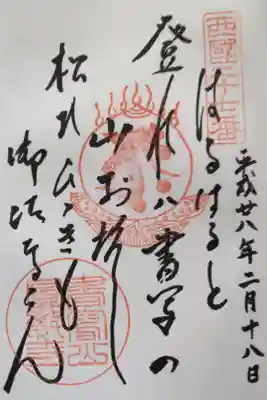 西國二十七番
平成廿八年二月十八日
はるはると
登れハ書写の
山おろし
松乃ひゝきも
御法なるらん